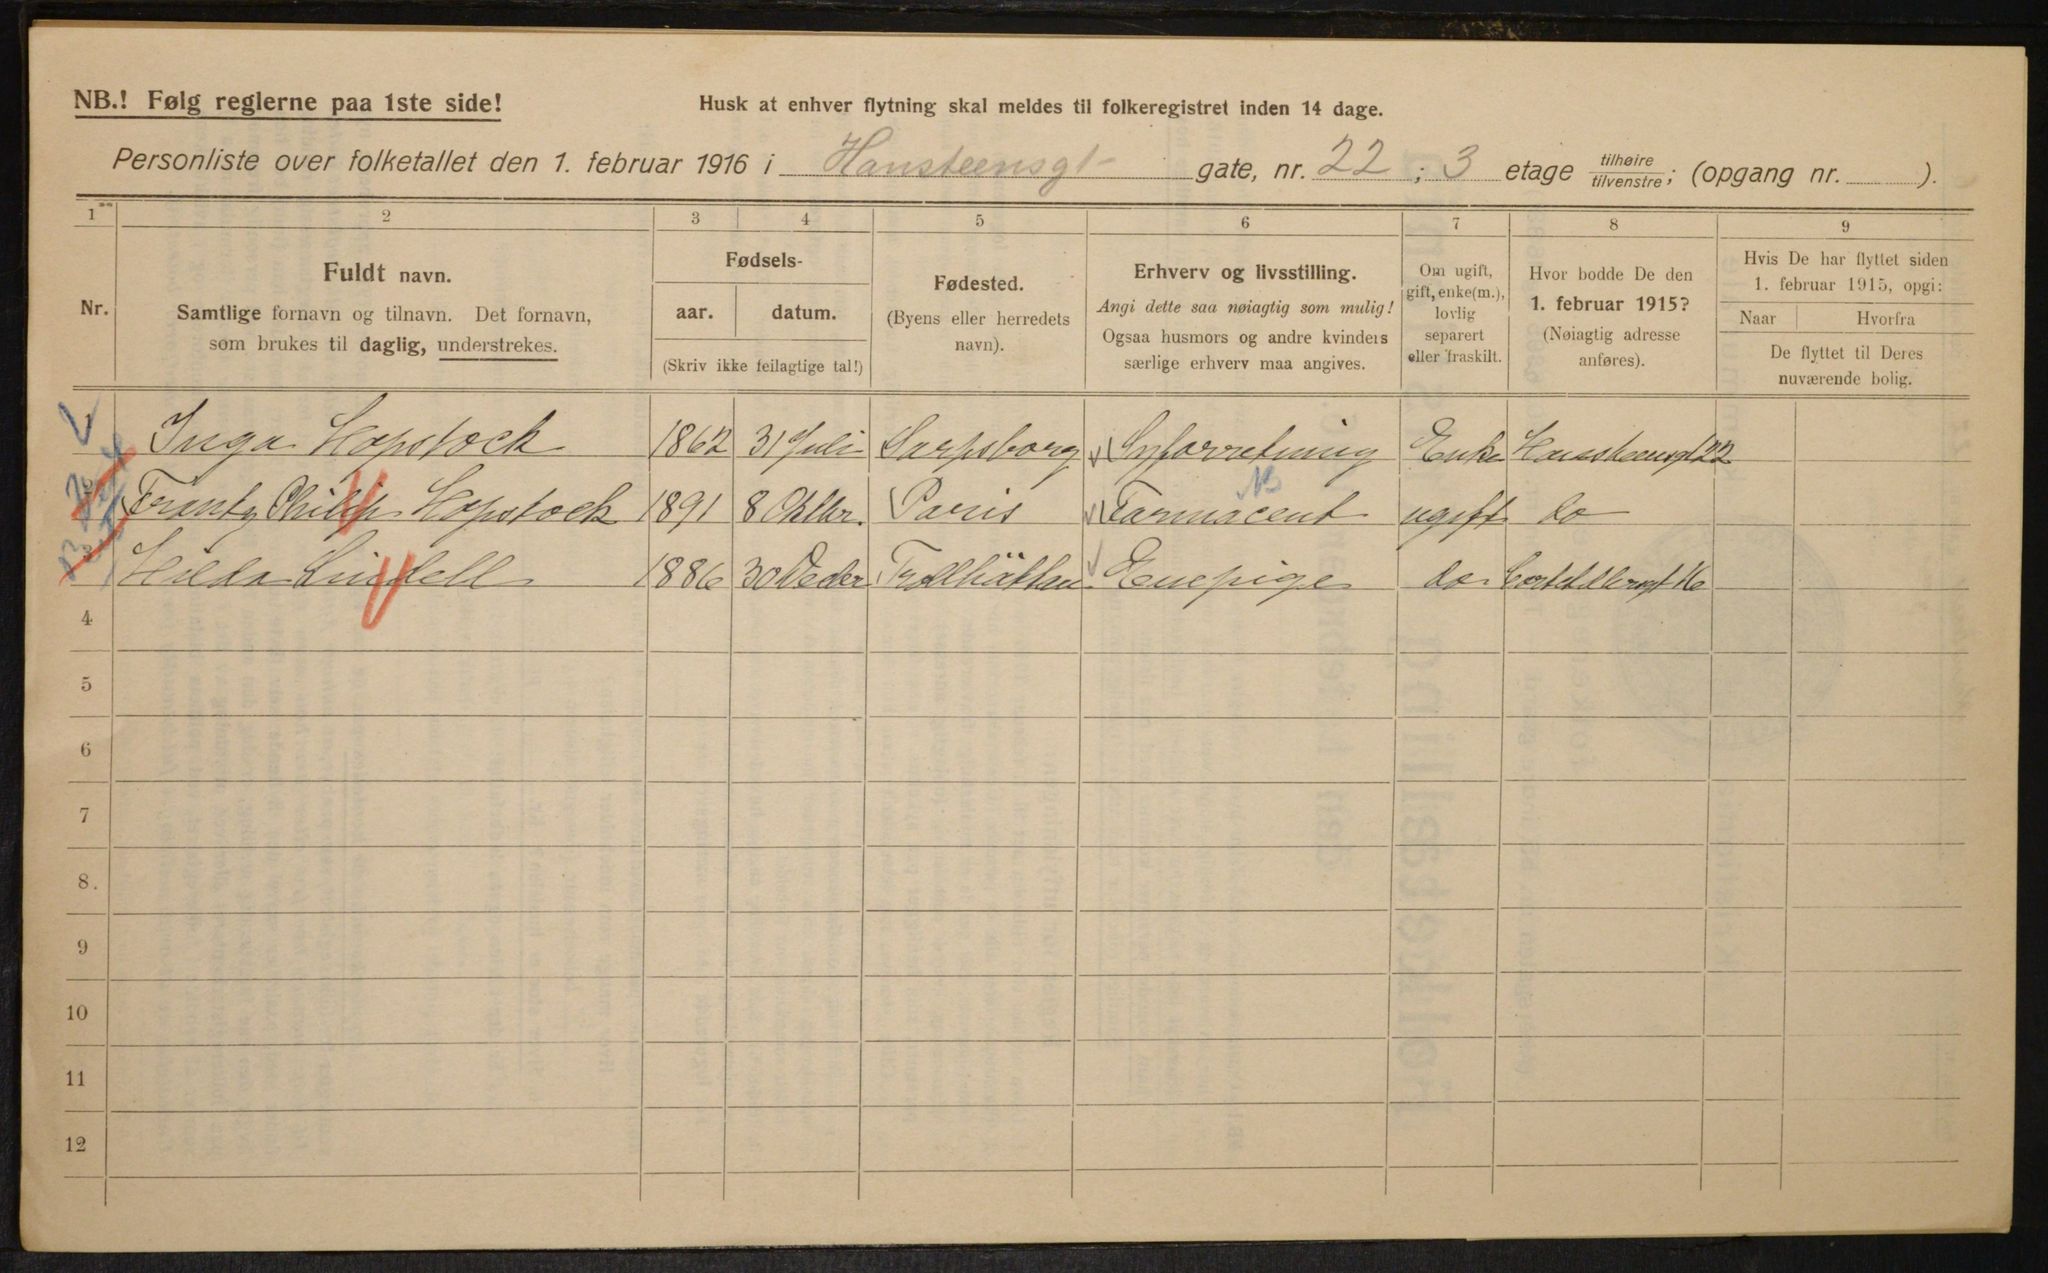 NB.! Følg reglerne paa 1ste side!
Husk at enhver flytning skal meldes til folkeregistret inden 14 dage.
Personliste over folketallet den 1. februar 1916 i Hansteensgt gate, nr. 22 ; 3 etage tilhøire/tilvenstre; (opgang nr. ).
1 2 3 4 5 6 7 8 9
Nr.
Fuldt navn.
Samtlige fornavn og tilnavn. Det fornavn,
som brukes til daglig, understrekes.
Fødsels-
aar. datum.
(Skriv ikke feilagtige tal!)
Fødested.
(Byens eller herredets
navn).
Erhverv og livsstilling.
Angi dette saa nøiagtig som mulig!
Ogsaa husmors og andre kvinders
særlige erhverv maa angives.
Om ugift,
gift, enke(m.),
lovlig
separert
eller fraskilt.
Hvor bodde De den
1. februar 1915?
(Nøiagtig adresse
anføres).
Hvis De har flyttet siden
1. februar 1915, opgi:
Naar Hvorfra
De flyttet til Deres
nuværende bolig.
1 Inga Hopstock 1862 31 Juli Sarpsborg Syforretning Enke Hansteensgt 22
2 Frantz Philip Hopstock 1891 8 Oktbr. Paris Farmaceut ugift do
3 Hilda Lindell 1886 30 Decbr Trollhättan Enepige do
4
5
6
7
8.
9
10
11
12